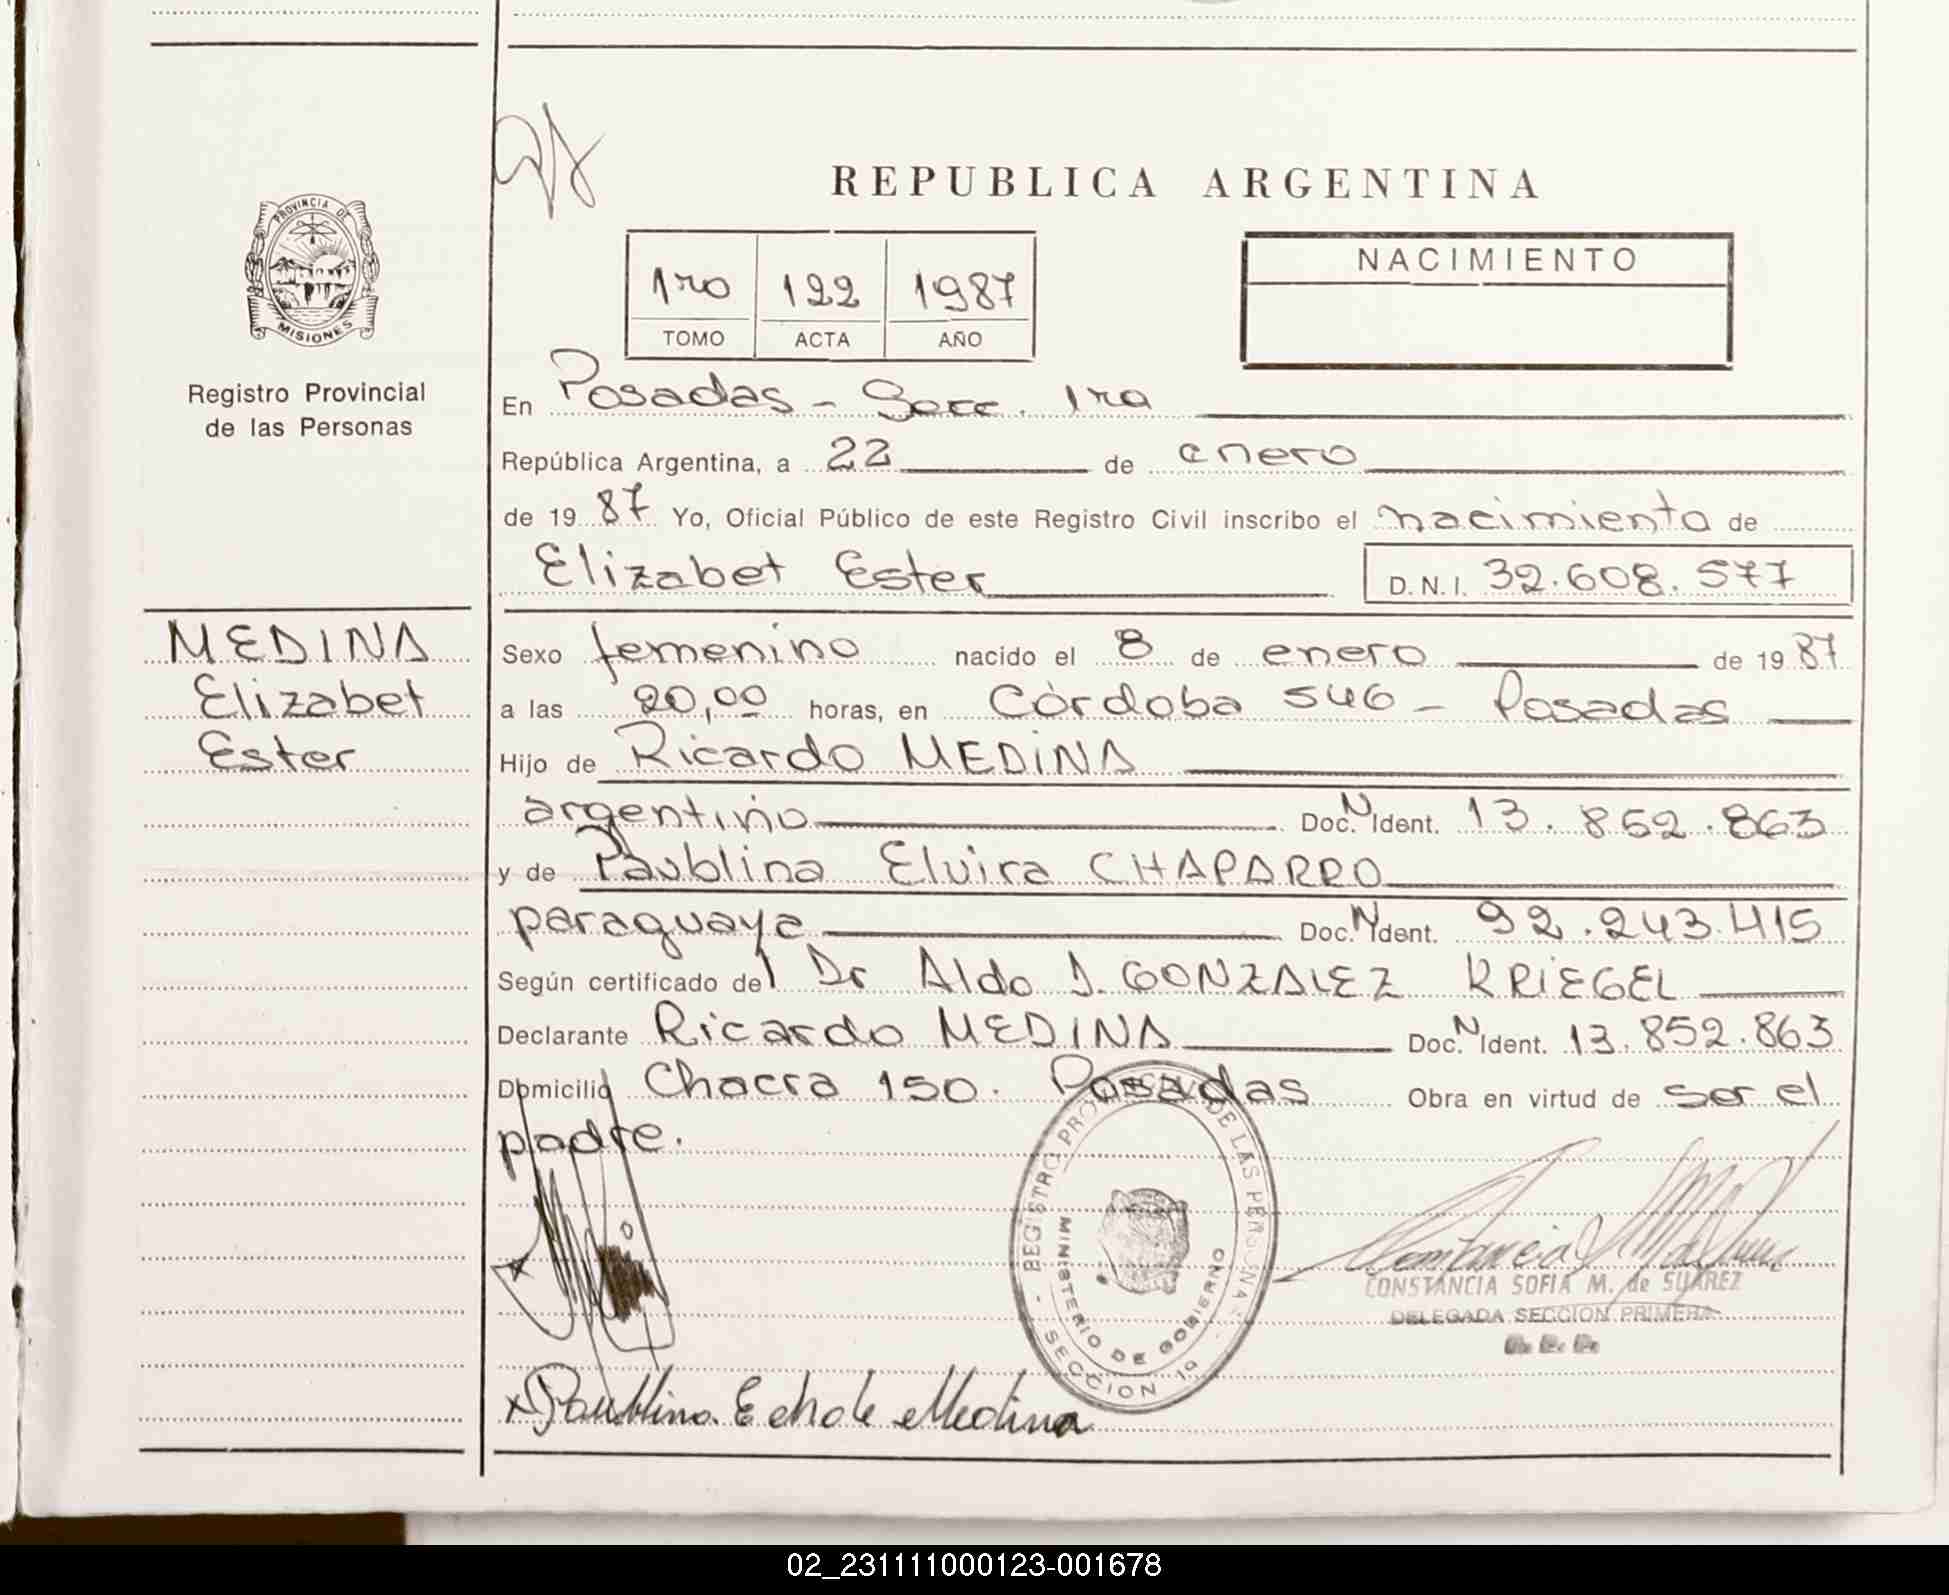 REPUBLICA ARGENTINA
PROVINCIA DE
MISIONES
Registro Provincial
de las Personas
1ro 122 1987
TOMO ACTA AÑO
NACIMIENTO
En Posadas - Secc. 1ra
República Argentina, a 22 de enero
de 19 87 Yo, Oficial Público de este Registro Civil inscribo el nacimiento de
Elizabet Ester D.N.I. 32.608.577
MEDINA
Elizabet
Ester
Sexo femenino nacido el 8 de enero de 19 87
a las 20,00 horas, en Córdoba 546 - Posadas
Hijo de Ricardo MEDINA
argentino Doc. N Ident. 13.852.863
y de Paublina Elvira CHAPARRO
paraguaya Doc. N Ident. 92.243.415
Según certificado del Dr Aldo J. GONZALEZ KRIEGEL
Declarante Ricardo MEDINA Doc. N Ident. 13.852.863
Domicilio Chacra 150. Posadas Obra en virtud de ser el
padre.
REGISTRO PROVINCIAL DE LAS PERSONAS
MINISTERIO DE GOBIERNO
SECCION 1a
CONSTANCIA SOFIA M. de SUAREZ
DELEGADA SECCION PRIMERA
Paublina E de Medina
02_231111000123-001678